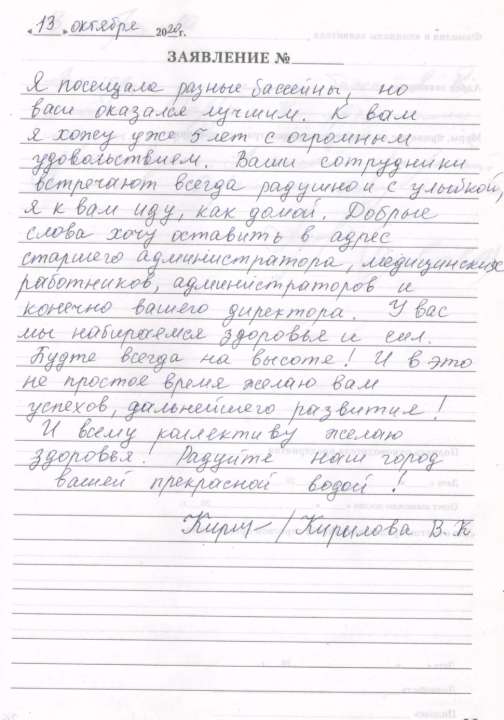 «13» октября 2020г.
ЗАЯВЛЕНИЕ №
Я посещала разные бассейны, но
ваш оказался лучшим. К вам
я хожу уже 5 лет с огромным
удовольствием. Ваши сотрудники
встречают всегда радушно и с улыбкой,
я к вам иду, как домой. Добрые
слова хочу оставить в адрес
старшего администратора, медицинских
работников, администраторов и
конечно вашего директора. У вас
мы набираемся здоровья и сил.
Будте всегда на высоте! И в это
не простое время желаю вам
успехов, дальнейшего развития!
И всему коллективу желаю
здоровья! Радуйте наш город
вашей прекрасной водой!
/Кирилова В. К